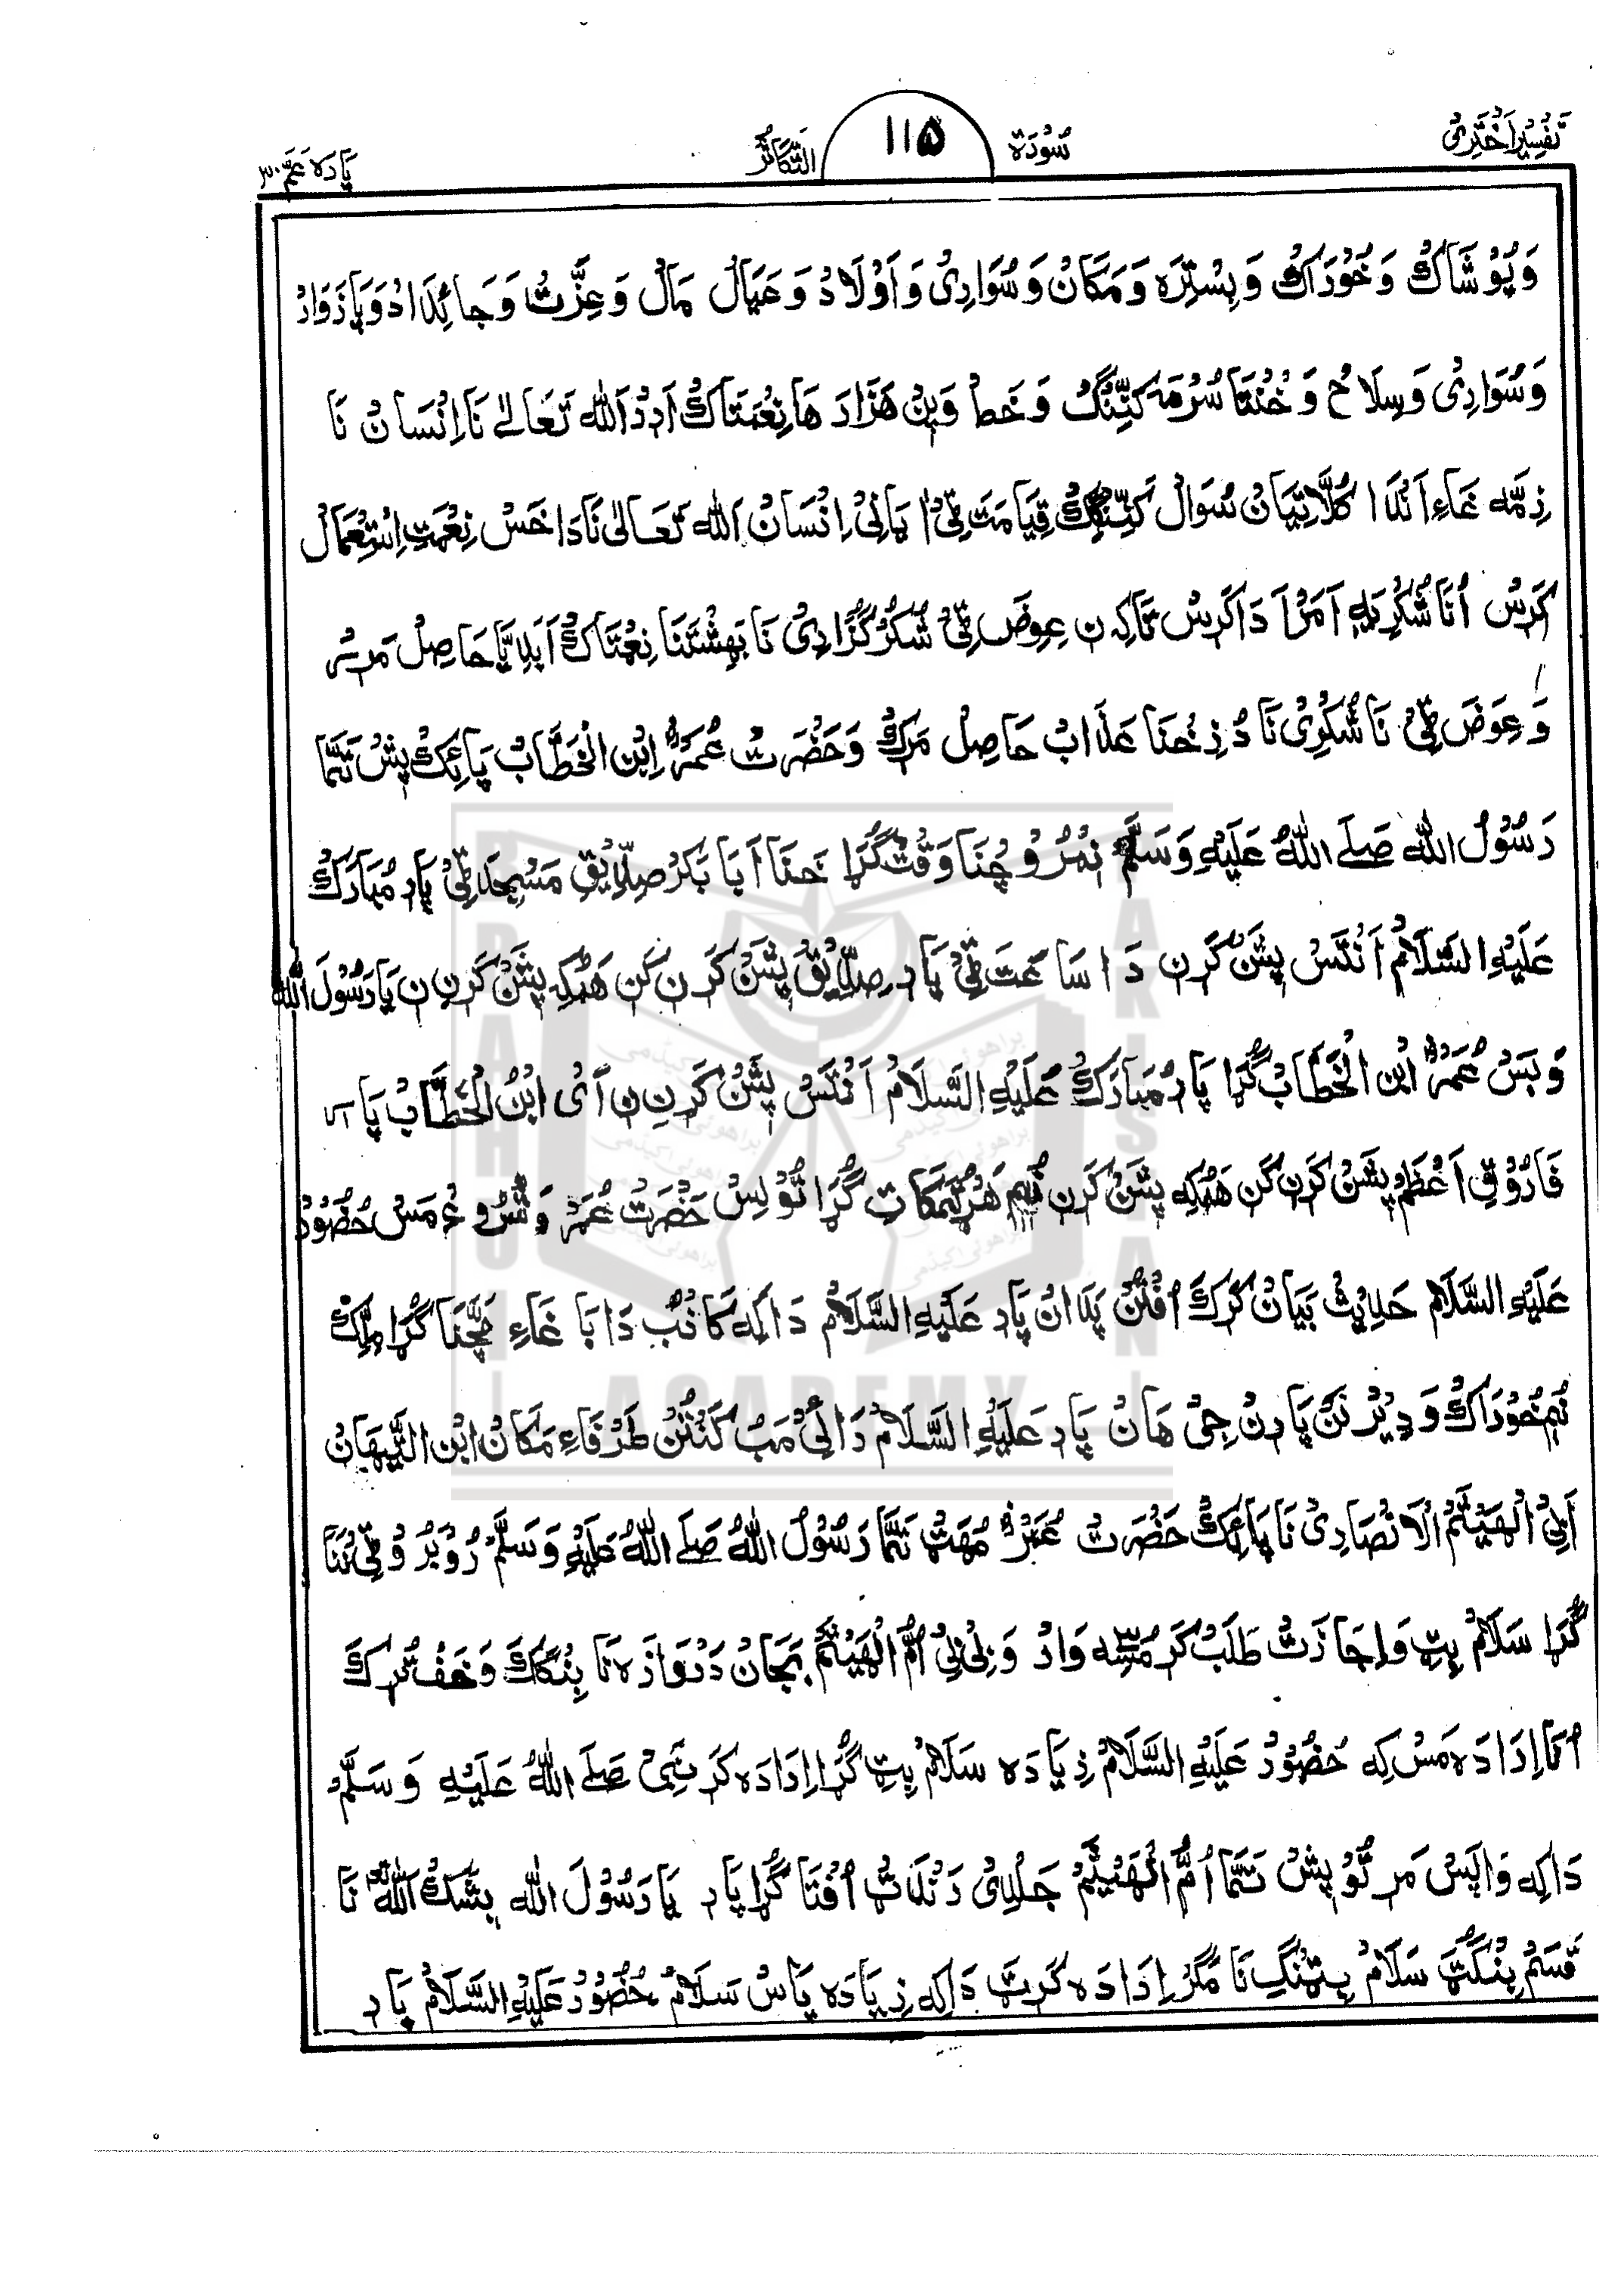 تَفْسِیْرِ اَخْتَرِیْ سُوْرَة ١١۵ التَّکَاثُرُ پَارَہ عَمَّ ٣٠
وَ پُوْشَاکْ وَ خُوْرَاکْ وَ بِسْتِرَہ وَ مَکَانْ وَ سُوَارِیْ وَ اَوْلَادْ وَ عَیَالْ مَالْ وَ عِزَّتْ وَ جَائِدَادْ وَ بَازَوَادْ
وَ سُوَارِیْ وَ سِلَاحْ وَ خُنْتَا سُرْمَہ کَنِّنْگْ وَ خَطْ وَ پِنْ هَزَارَ هَا نِعْمَتَاکْ اَرْدْ اَللّٰه تَعَالٰے نَا اِنْسَانْ نَا
ذِمَّه غَاءِ اَنْدَا کُلَّا تِیَانْ سُوَالْ کَنِّنْگِکْ قِیَامَتَ ٹِیْ اٰیَانِیْ اِنْسَانْ اَللّٰه تَعَالٰی نَا دَا خَسْ نِعْمَتِ اِسْتِعْمَالْ
کَرِسْ اُنَا شُکْرِیَهِ اَمْرْ اَدَا کَرِسْ تَاکِه نِ عِوَضْ ٹِیْ شُکْرْ گُزَارِیْ نَا بَهِشْتَنَا نِعْمَتَاکْ اَبَدِیَّا حَاصِلْ مَرِسْ
وَ عِوَضْ ٹِیْ نَا شُکْرِیْ نَا دُذِخْنَا عَذَابْ حَاصِلْ مَرِکْ وَ حَضْرَتْ عُمَرْ اِبْنِ الْخَطَّابْ پَائِکْ پِشْ تَمَّا
رَسُوْلُ اللّٰه صَلَے اللّٰهُ عَلَیْهِ وَسَلَّمْ نِمْرُوْچْنَا وَقْتْ گُڑَا خَنَا اَبَا بَکْرْ صِدِّیْقِ مَسْجِدَ ٹِیْ پَارِ مُبَارَکْ
عَلَیْهِ السَّلَامْ اَنْتَسْ پِشَّنْ کَرِنِ دَا سَاعَتَ ٹِیْ پَارِ صِدِّیْقْ پِشَّنْ کَرِنِ کَنِ هَمْکِه پِشَّنْ کَرِنِ نِ یَا رَسُوْلَ اللّٰه
وَ بَسْ عُمَرْ اُبْنِ الْخَطَّابْ گُڑَا پَارِ مُبَارَکْ عَلَیْهِ السَّلَامْ اَنْتَسْ پِشَّنْ کَرِنِ نِ اَیْ ابْنُ الْخَطَّابْ پَارِ
فَارُوْقِ اَعْظَمْ پِشَّنْ کَرِنِ کَنِ هَمْکِه پِشَّنْ کَرِنِ نُمِ گُڑَا تُوْلِسْ حَضْرَتْ عُمَرْ مَسْ حُضُوْرْ
عَلَیْهِ السَّلَامْ حَدِیْثْ بَیَانْ کَرِکْ اُفْتَنْ پَدَانْ پَارِ عَلَیْهِ السَّلَامْ دَاکِه کَانُبْ دَا بَاغَاءِ مَچَّنَا گُڑَا مِلِکْ
نُمِ خُوْرَاکْ وَ دِیْرْ نَنْ پَارِنْ جِیْ هَانْ پَارِ عَلَیْهِ السَّلَامْ دَالَیْ مَبْ کَنْتُنْ طَرْفَاءِ مَکَانْ ابْنِ التَّیِّهَانْ
اَبِیْ الْهَیْثَمْ الْاَنْصَارِیْ نَا پَائِکْ حَضْرَتْ عُمَرْ مُهَتْ تَمَّا رَسُوْلُ اللّٰهُ صَلَے اللّٰهُ عَلَیْهِ وَسَلَّمْ رُوْبَرُوْ ٹِیْ نَنَا
گُڑَا سَلَامْ بِتِ وَ اِجَازَتْ طَلَبْ کَرِ مُسِه وَارْ وَ بِیْ بِیْ اُمُّ الْهَیْثَمْ بَجَانْ دَرْوَازَہ نَا بِنْگَکْ وَ خَفْ تُرِکَ
اُنَا اِرَادَہ مَسْ کِه حُضُوْرْ عَلَیْهِ السَّلَامْ زِیَادَہ سَلَامْ بِتِ گُڑَا اِرَادَہ کَرِ نَبِیْ صَلَے اللّٰهُ عَلَیْهِ وَسَلَّمْ
دَاکِه وَاپَسْ مَرِ تُوْ پِشْ تَمَّا اُمُّ الْهَیْثَمْ جَلْدِیْ رَنْدَتْ اُفْتَا گُڑَا پَارِ یَا رَسُوْلَ اللّٰه بِشَکْ اَللّٰه نَا
قَسَمْ بِنْگَتَ سَلَامْ بِتِنْگِ نَا مَگَرْ اِرَادَہ کَرِتَ دَاکِه زِیَادَہ پَاسْ سَلَامْ حُضُوْرْ عَلَیْهِ السَّلَامْ پَارِ